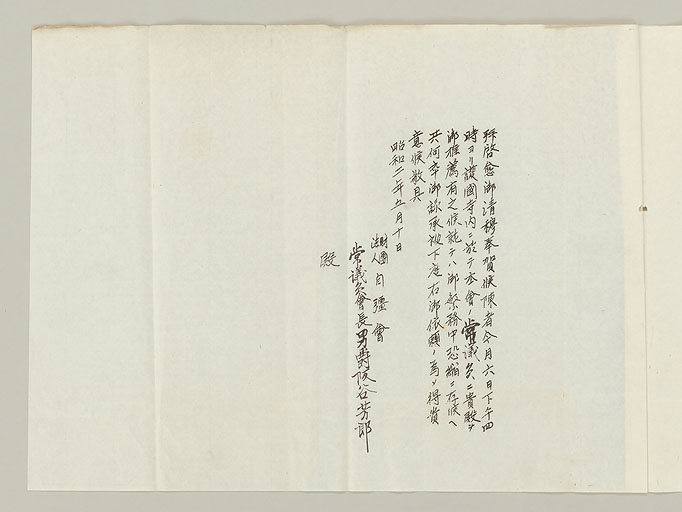 拝啓愈御清穆奉賀候陳者今月六日下午四
時ヨリ護國寺内ニ於テ本會ノ常議員ニ貴殿ヲ
御推薦有之候就テハ御繁務中恐縮ニ存候ヘ
共何卒御諒承被下度右御依頼ノ為メ得貴
意候敬具
昭和二年五月十日
財團法人自彊會
常議員會長男爵阪谷芳郎
殿